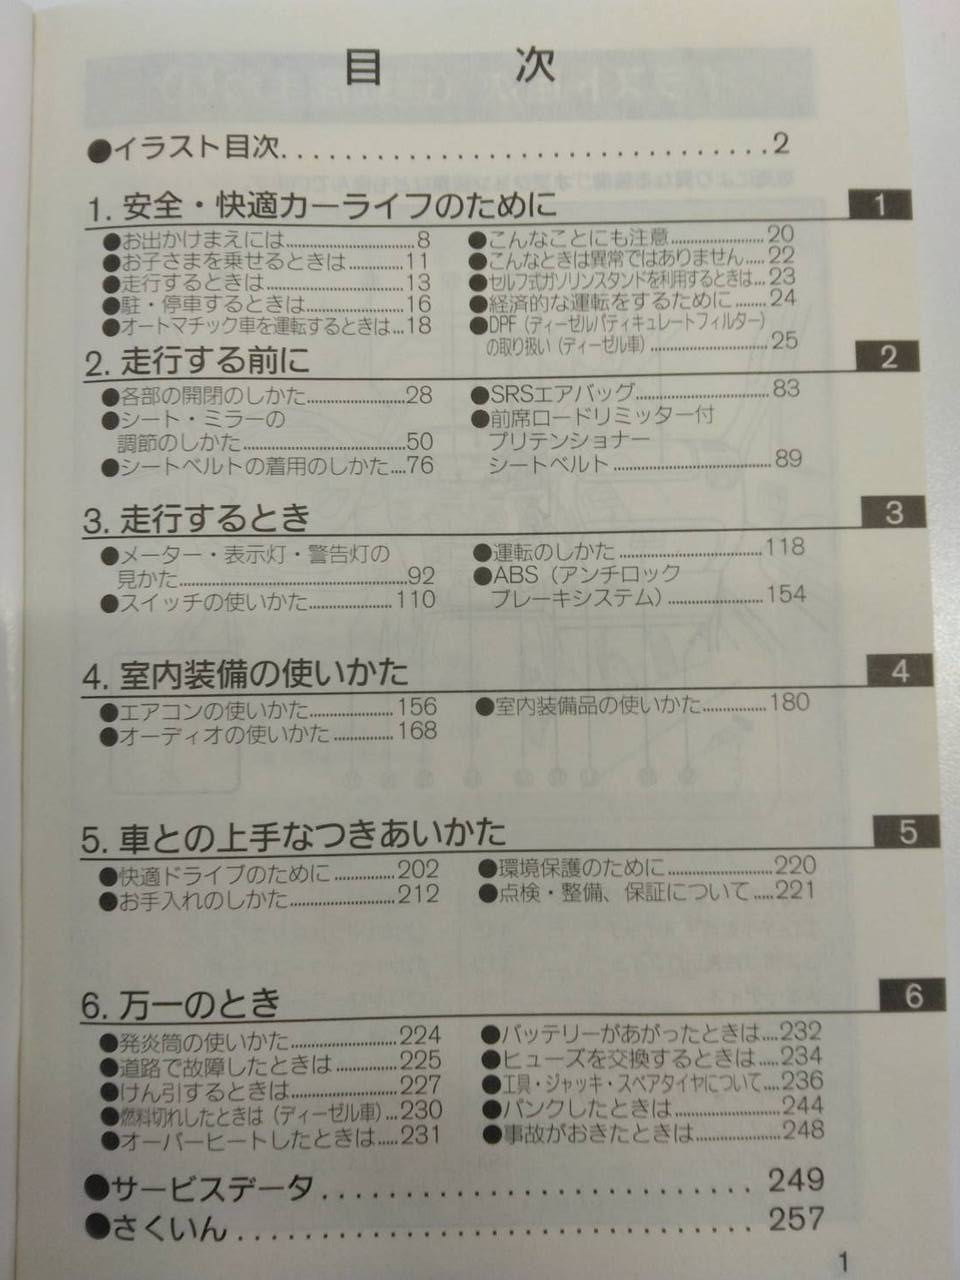 目 次
●イラスト目次..............................2
1. 安全・快適カーライフのために 1
●お出かけまえには..............................8
●お子さまを乗せるときは.............11
●走行するときは.................................13
●駐・停車するときは........................16
●オートマチック車を運転するときは...18
●こんなことにも注意.......................20
●こんなときは異常ではありません.....22
●セルフ式ガソリンスタンドを利用するときは...23
●経済的な運転をするために........24
●DPF（ディーゼルパティキュレートフィルター）
の取り扱い（ディーゼル車）..............................25
2. 走行する前に 2
●各部の開閉のしかた........................28
●シート・ミラーの
調節のしかた.......................................50
●シートベルトの着用のしかた....76
●SRSエアバッグ.................................83
●前席ロードリミッター付
プリテンショナー
シートベルト.......................................89
3. 走行するとき 3
●メーター・表示灯・警告灯の
見かた.......................................................92
●スイッチの使いかた....................110
●運転のしかた...................................118
●ABS（アンチロック
ブレーキシステム）.......................154
4. 室内装備の使いかた 4
●エアコンの使いかた....................156
●オーディオの使いかた...............168
●室内装備品の使いかた...............180
5. 車との上手なつきあいかた 5
●快適ドライブのために...............202
●お手入れのしかた..........................212
●環境保護のために..........................220
●点検・整備、保証について.....221
6. 万一のとき 6
●発炎筒の使いかた..........................224
●道路で故障したときは...............225
●けん引するときは..........................227
●燃料切れしたときは（ディーゼル車）...230
●オーバーヒートしたときは.....231
●バッテリーがあがったときは....232
●ヒューズを交換するときは.....234
●工具・ジャッキ・スペアタイヤについて....236
●パンクしたときは..........................244
●事故がおきたときは....................248
●サービスデータ...........................249
●さくいん................................257
1